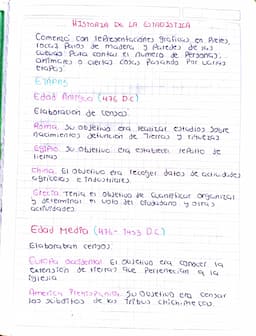 HISTORIA DE LA ESTADISTICA
Comenzó con representaciones gráficas en pieles,
rocas, palos de madera y paredes de las
cuevas para contar el numero de personas,
animales o ciertas cosas pasando por varias
etapas
ETAPAS
Edad Antigua (476 D.C)
Elaboración de censos
Roma: su objetivo era realizar estudios sobre
nacimientos, defunción de tierras y riquezas
Egipto: su objetivo era establecer reparto de
tierras
China: El objetivo era recoger datos de actividades
agrícolas e industriales.
Grecia: Tenía el objetivo de cuantificar, organizar
y determinar el voto del ciudadano y otras
actividades
Edad Media (476-1453 D.C)
Elaboraban censos
Europa Occidental: El objetivo era conocer la
extensión de tierras que pertenecían a la
iglesia
America Prehispanica: Su objetivo era censar
los súbditos de las tribus chichimecas.